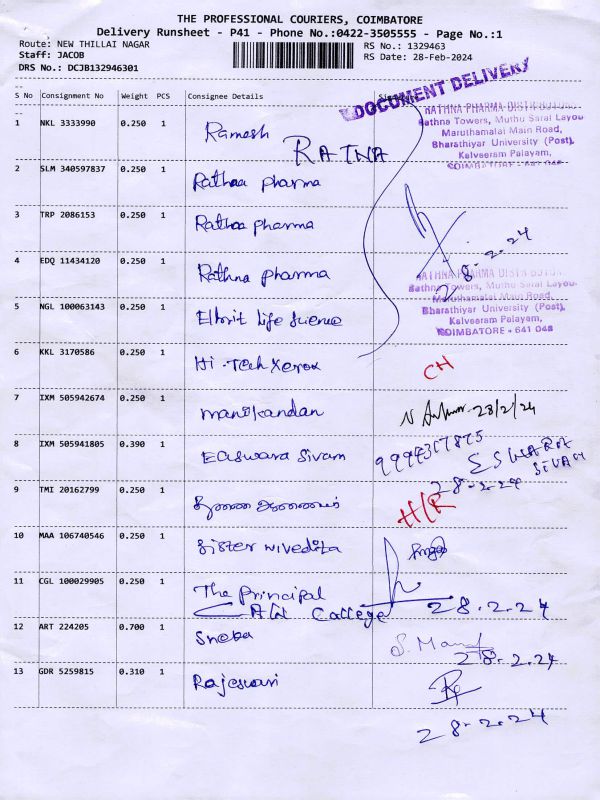 THE PROFESSIONAL COURIERS, COIMBATORE
Delivery Runsheet - P41 - Phone No.:0422-3505555 - Page No.:1
Route: NEW THILLAI NAGAR
RS No.: 1329463
Staff: JACOB
RS Date: 28-Feb-2024
DRS No.: DCJB132946301
S No Consignment No Weight PCS Consignee Details
DOCUMENT DELIVERY
RATHNA PHARMA DISTRIBUTORS
Rathna Towers, Muthu Sarai Layou
Maruthamalai Main Road,
Bharathiyar University (Post),
Kalveeram Palayam,
COIMBATORE - 641 046
1 NKL 3333990 0.250 1 Ramesh
RATNA
2 SLM 340597837 0.250 1 Rathaa pharma
3 TRP 2086153 0.250 1 Rathaa pharma
28-2-24
4 EDQ 11434120 0.250 1 Rathna pharma
RATHNA PHARMA DISTRIBUTORS
Rathna Towers, Muthu Sarai Layou
Maruthamalai Main Road,
Bharathiyar University (Post),
Kalveeram Palayam,
COIMBATORE - 641 046
5 NGL 100063143 0.250 1 Elbrit Life Science
6 KKL 3170586 0.250 1 Hi-Tech Xerox
CH
7 IXM 505942674 0.250 1 manikandan
28/2/24
8 IXM 505941805 0.390 1 Easwara Sivam
ESWARA
SIVAM
28-2-24
9 TMI 20162799 0.250 1
H/R
10 MAA 106740546 0.250 1 Sister Nivedita
11 CGL 100029905 0.250 1 The Principal
College
28.2.24
12 ART 224205 0.700 1 Sneba
28.2.24
13 GDR 5259815 0.310 1 Rajeswari
28-2-24